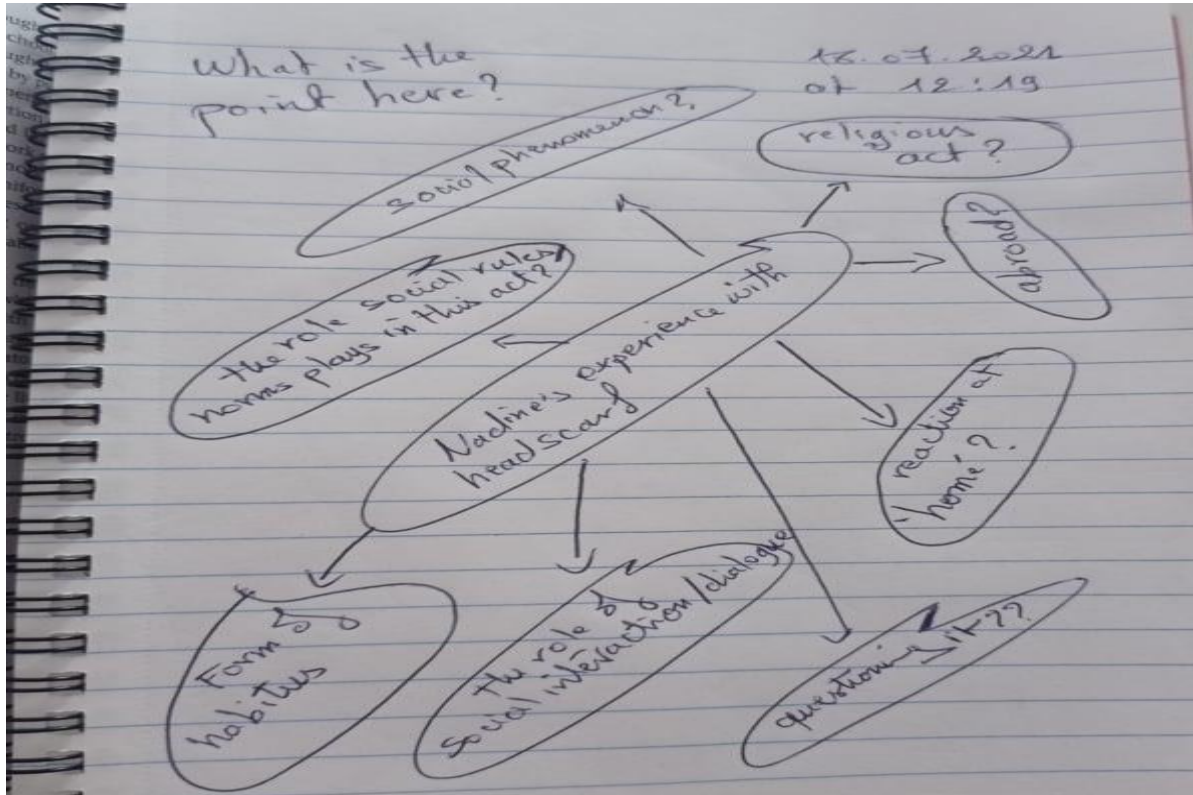 What is the
point here?
18.07.2021
at 12:19
social phenomenon?
religious
act?
abroad?
the role social rules
norms plays in this act?
Nadine's experience with
headscarf
reaction at
'home'?
Form of
habitus
the role of
social interaction/dialogue
questioning it??